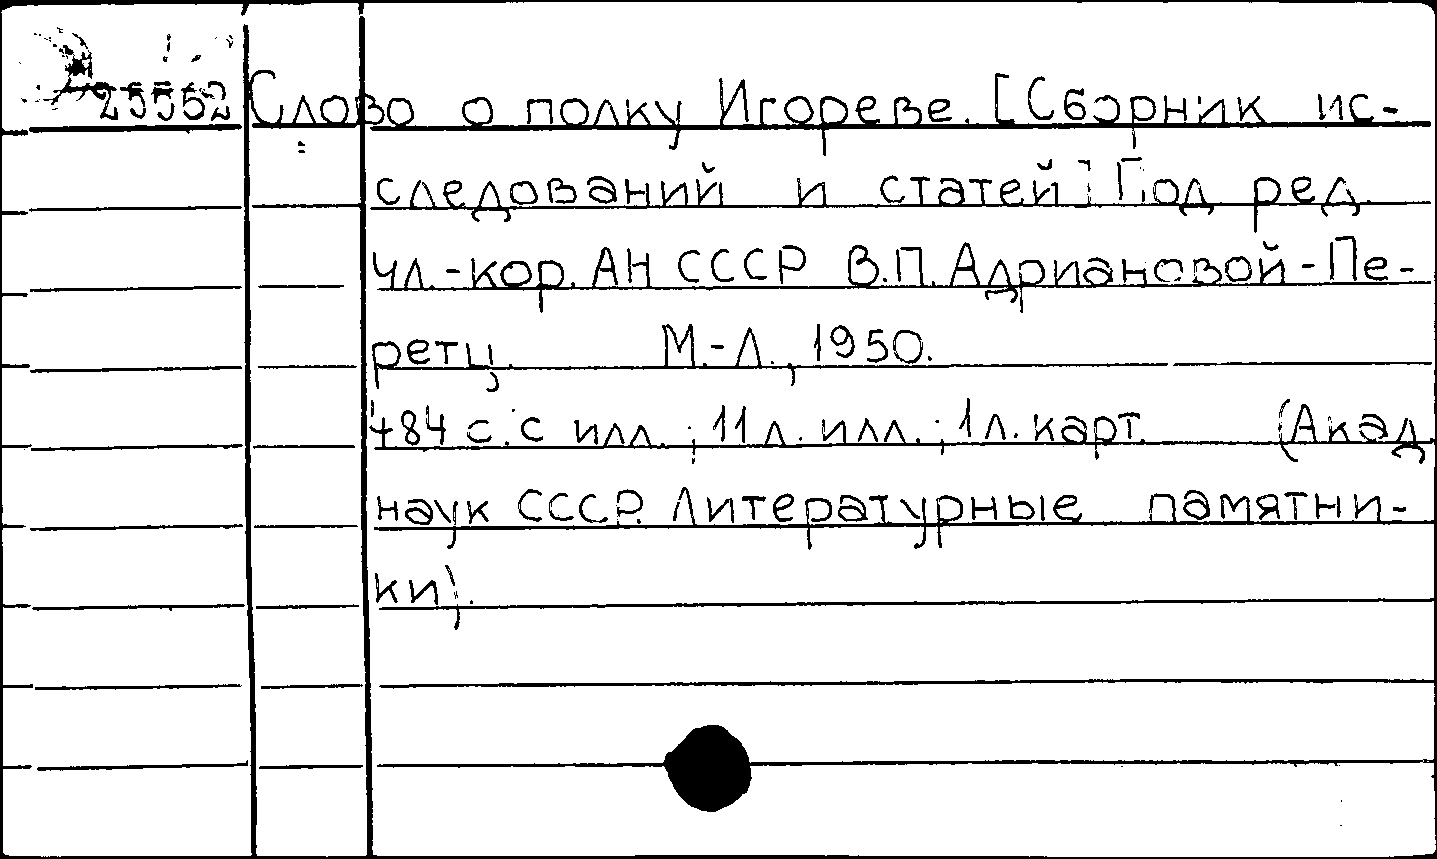 25552 Слово о полку Игореве. [Сборник ис-
следований и статей] Под ред.
чл.-кор. АН СССР В.П. Адриановой-Пе-
ретц. М.-Л., 1950.
484 с. с илл.; 11 л. илл.; 1 л. карт. (Акад.
наук СССР. Литературные памятни-
ки).